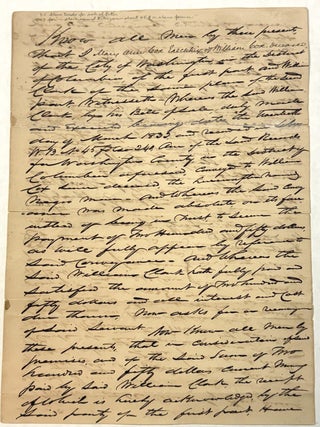 Know all Men by these present
that I Mary Ann Cox Executrix of William Cox deceased
of the City of Washington in the District
of Columbia of the first part and William
Clark of the same place of the second
part Witnesseth Whereas the said William
Clark by his Bill of Sale duly made
and executed bearing date the twentieth
day of March 1833 and recorded in Liber
W.B. No 45 folio 241 &c of the Land Records
for Washington County in the District of
Columbia expressed conveyed to William
Cox since deceased the
Negro man And Whereas the said
was made absolute on its face
instead of being as Meant to secure the
payment of Two Hundred and fifty dollars
as will fully appear by reference to
said Conveyance And Whereas the
said William Clark hath fully paid and
satisfied the amount of Two hundred and
fifty dollars and all interest and Cost
due thereon Now asks for a
of said Servant Now Know all Men by
these presents, that in consideration of the
premises and of the said Sum of Two
hundred and fifty dollars Current Money
paid by said William Clark the receipt
of Which is hereby acknowledged by the
said party of the first part Have